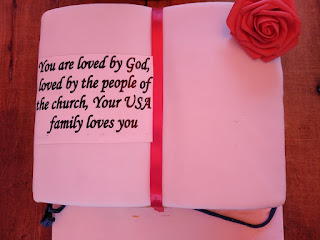 You are loved by God,
loved by the people of
the church, Your USA
family loves you